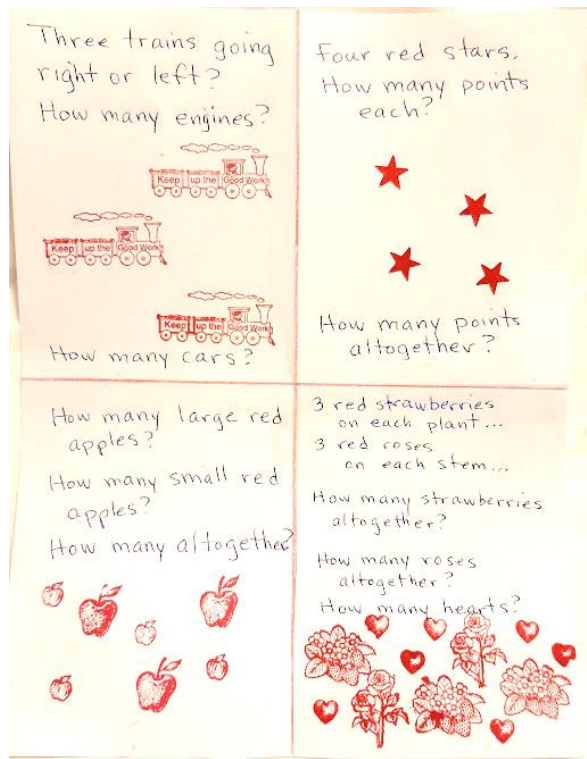 Three trains going
right or left?
How many engines?
Keep up the Good Work
Keep up the Good Work
Keep up the Good Work
How many cars?
Four red stars.
How many points
each?
How many points
altogether?
How many large red
apples?
How many small red
apples?
How many altogether?
3 red strawberries
on each plant...
3 red roses
on each stem...
How many strawberries
altogether?
How many roses
altogether?
How many hearts?